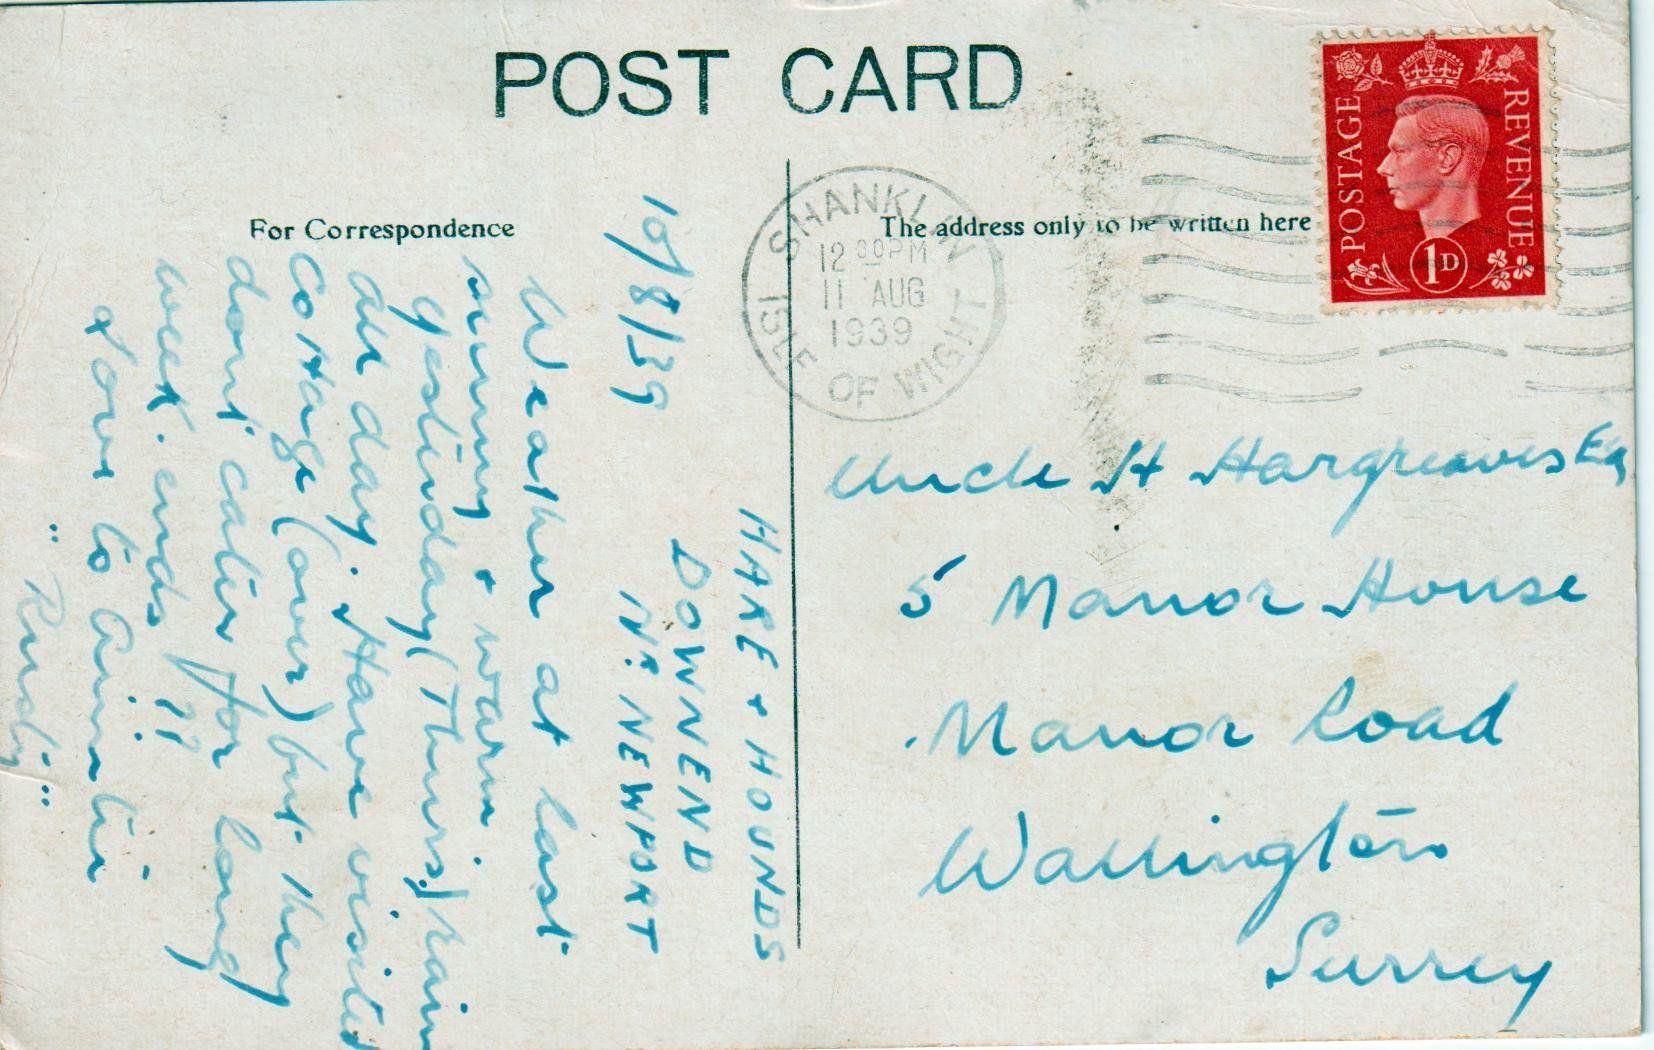 POST CARD
For Correspondence
The address only to be written here
POSTAGE
REVENUE
1D
SHANKLIN
12 30PM
11 AUG
1939
ISLE OF WIGHT
HARE + HOUNDS
DOWNEND
NR NEWPORT
10/8/39
Weather at last
sunny + warm.
yesterday (Thurs) rain
all day. Have visited
Cottage (over) but they
dont cater for long
week. ends !!
Love to
"Rudy"
Uncle H Hargreaves Esq
5 Manor House
Manor Road
Wallington
Surrey